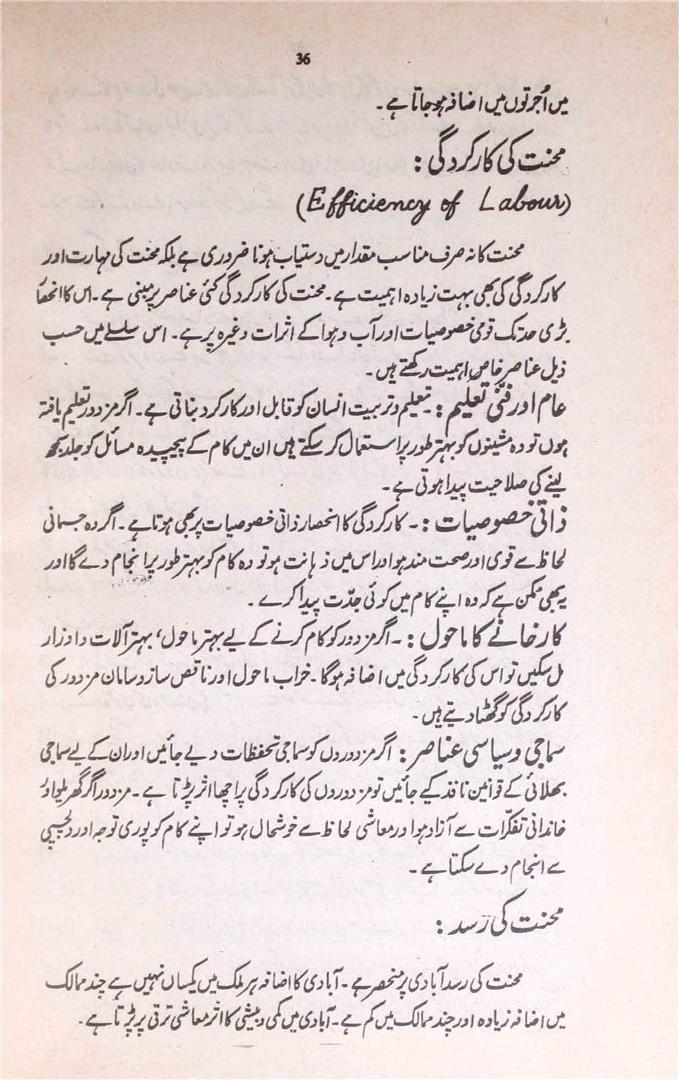 36
میں اُجرتوں میں اضافہ ہو جاتا ہے۔
محنت کی کارکردگی :
(Efficiency of Labour)
محنت کا نہ صرف مناسب مقدار میں دستیاب ہونا ضروری ہے بلکہ محنت کی مہارت اور
کارکردگی کی بھی بہت زیادہ اہمیت ہے۔ محنت کی کارکردگی کئی عناصر پر مبنی ہے۔ اس کا انحصار
بڑی حد تک قومی خصوصیات اور آب و ہوا کے اثرات وغیرہ پر ہے۔ اس سلسلے میں حسب
ذیل عناصر خاص اہمیت رکھتے ہیں۔
عام اور فنّی تعلیم :۔ تعلیم و تربیت انسان کو قابل اور کارکرد بناتی ہے۔ اگر مزدور تعلیم یافتہ
ہوں تو وہ مشینوں کو بہتر طور پر استعمال کر سکتے ہیں ان میں کام کے پیچیدہ مسائل کو جلد سمجھ
لینے کی صلاحیت پیدا ہوتی ہے۔
ذاتی خصوصیات :۔ کارکردگی کا انحصار ذاتی خصوصیات پر بھی ہوتا ہے۔ اگر وہ جسمانی
لحاظ سے قوی اور صحت مند ہو اور اس میں ذہانت ہو تو وہ کام کو بہتر طور پر انجام دے گا اور
یہ بھی ممکن ہے کہ وہ اپنے کام میں کوئی جدّت پیدا کرے۔
کارخانے کا ماحول :۔ اگر مزدور کو کام کرنے کے لیے بہتر ماحول، بہتر آلات و اوزار
مل سکیں تو اس کی کارکردگی میں اضافہ ہوگا۔ خراب ماحول اور ناقص ساز و سامان مزدور کی
کارکردگی کو گھٹا دیتے ہیں۔
سماجی و سیاسی عناصر : اگر مزدوروں کو سماجی تحفظات دیے جائیں اور ان کے لیے سماجی
بھلائی کے قوانین نافذ کیے جائیں تو مزدوروں کی کارکردگی پر اچھا اثر پڑتا ہے۔ مزدور اگر گھریلو اور
خاندانی تفکّرات سے آزاد ہو اور معاشی لحاظ سے خوشحال ہو تو اپنے کام کو پوری توجہ اور دلچسپی
سے انجام دے سکتا ہے۔
محنت کی رَسد :
محنت کی رسد آبادی پر منحصر ہے۔ آبادی کا اضافہ ہر ملک میں یکساں نہیں ہے چند ممالک
میں اضافہ زیادہ اور چند ممالک میں کم ہے۔ آبادی میں کمی و بیشی کا اثر معاشی ترقی پر پڑتا ہے۔